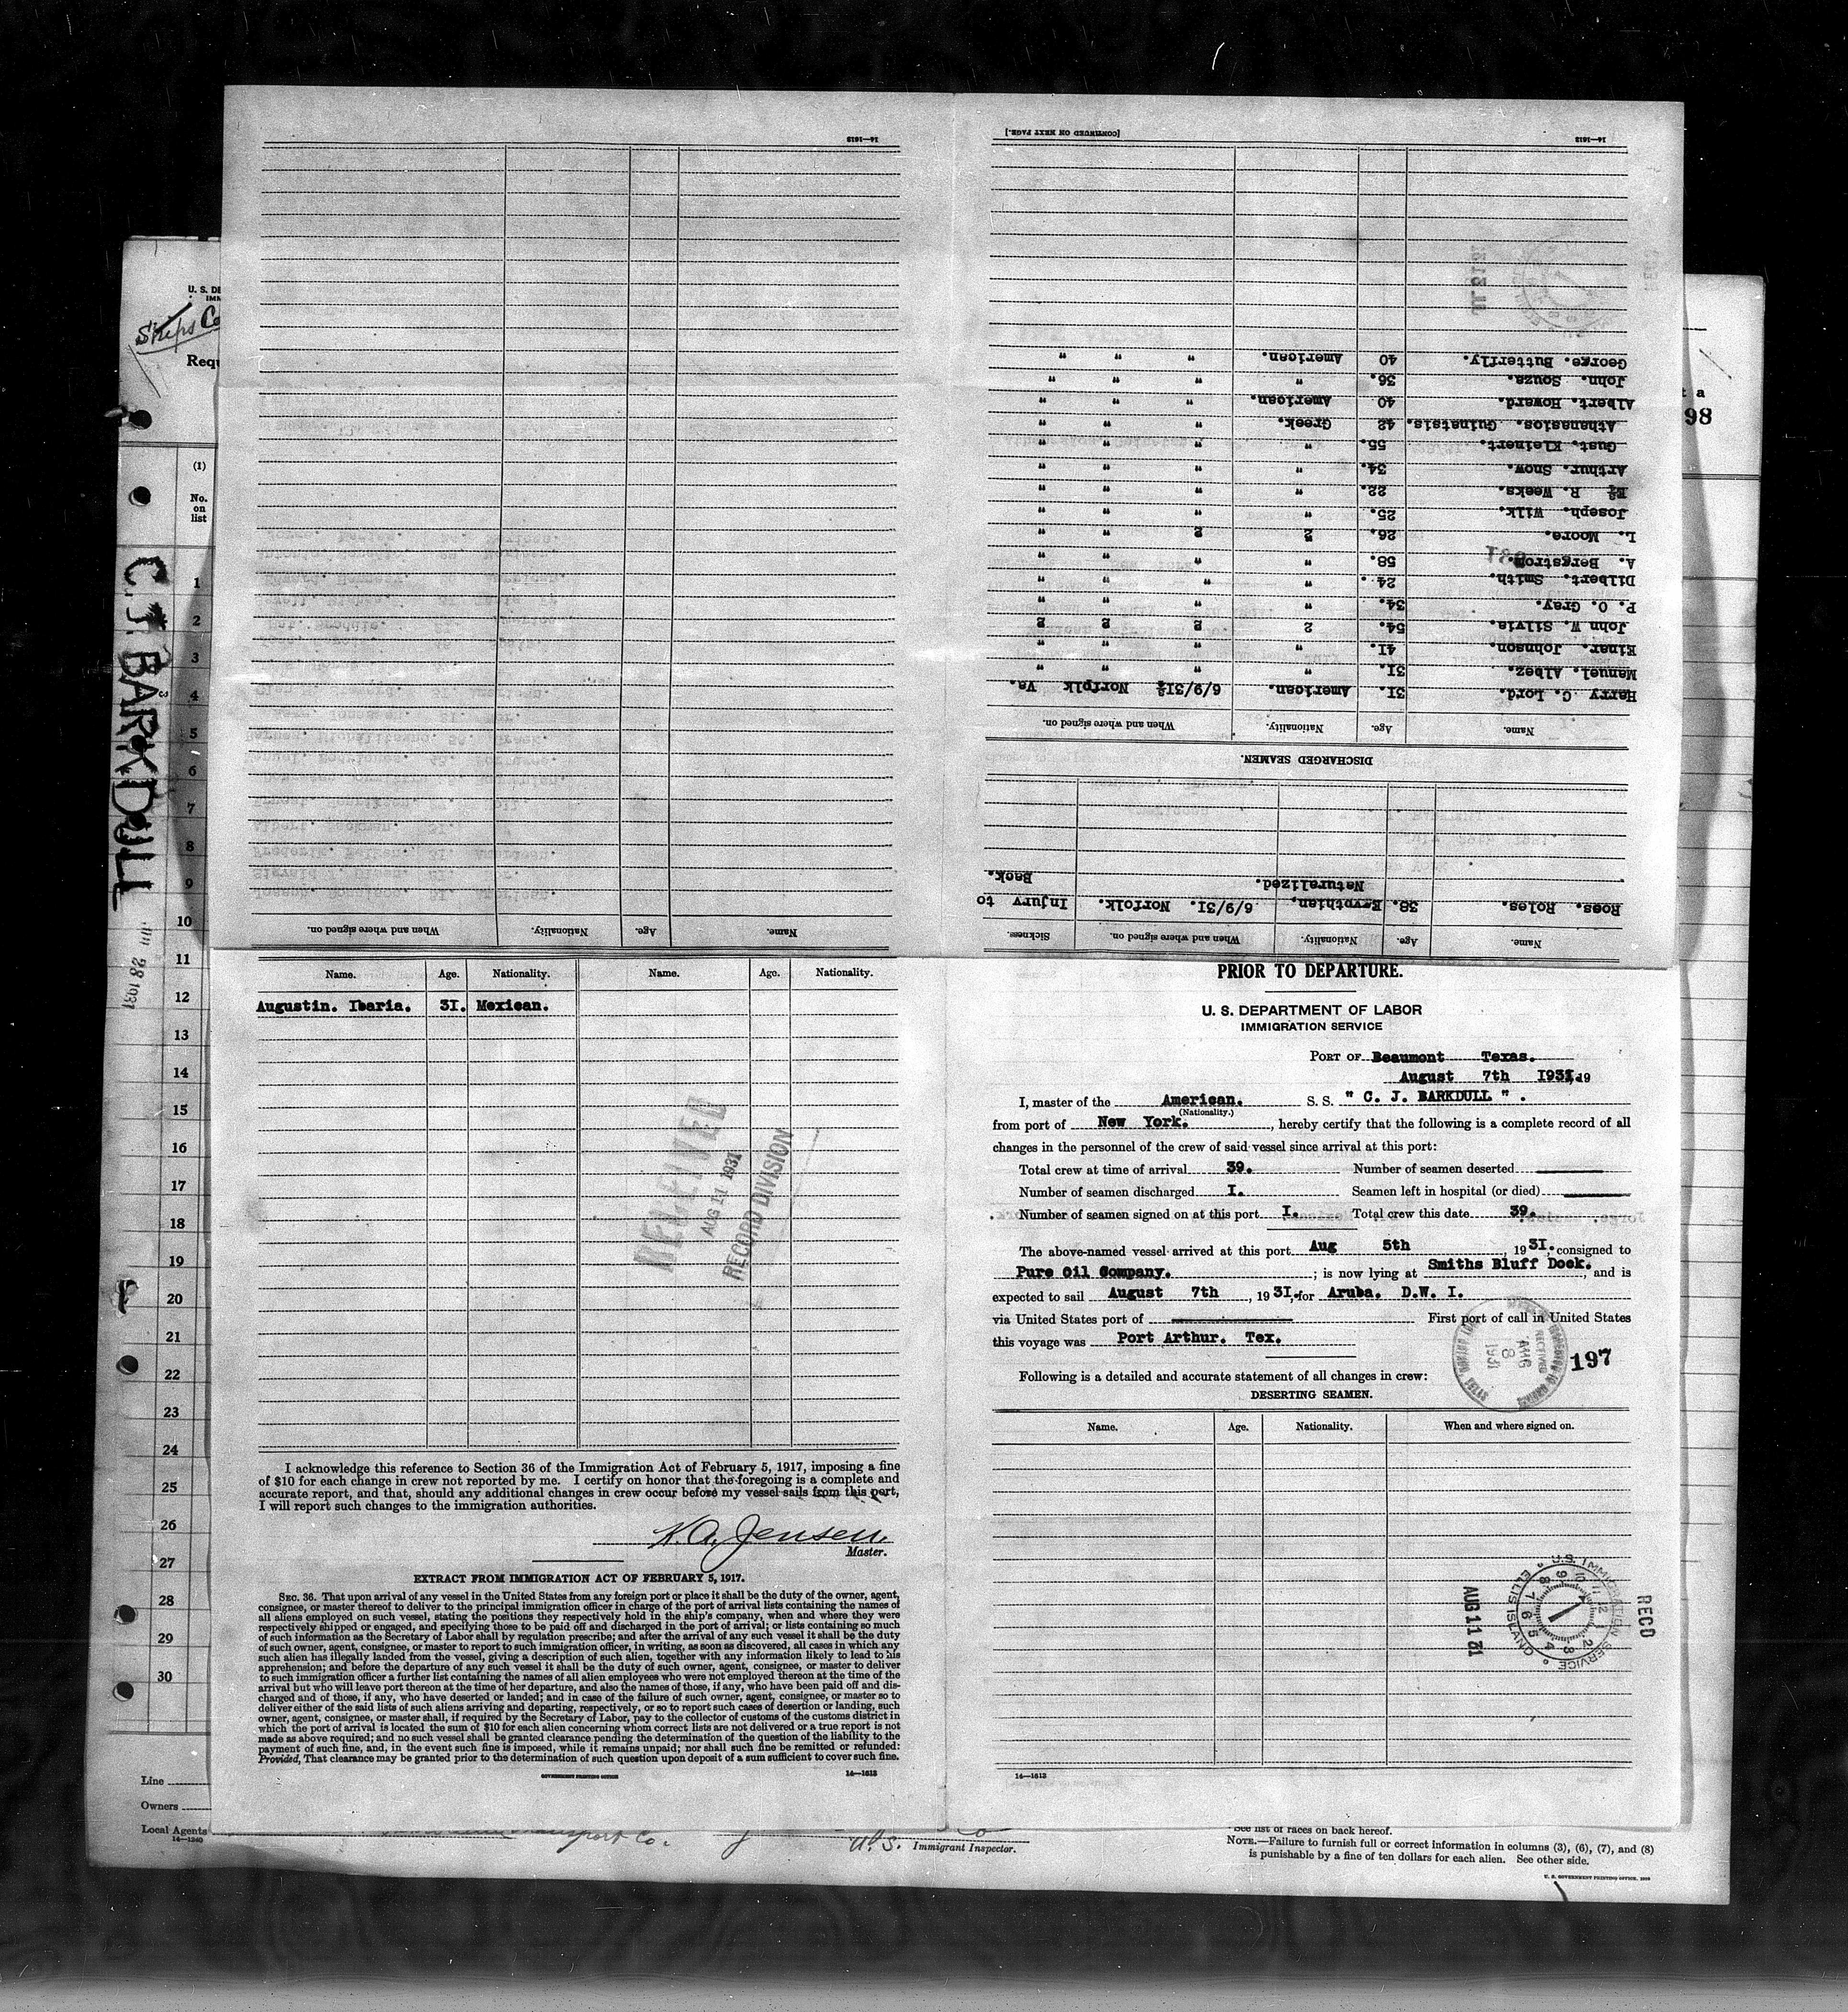 14—1613
[CONTINUED ON NEXT PAGE.]
14—1613
George. Butterfly. 40 American. " " "
John. Souza. 36. " " " "
Albert. Howard. 40 American. " " "
Athanasios. Guinatsis. 42 Greek. " " "
Gust. Kleinert. 55. " " " "
Arthur. Snow. 34. " " " "
R. Weeks. 22. " " " "
Joseph. Wilk. 25. " " " "
L. Moore. 26. 2 2 " "
A. Bergstrom. 58. " " " "
Dilbert. Smith. 24. " " " "
P. O. Gray. 34. " " " "
John W. Silvia. 54. 2 2 2 2
Einar. Johnson. 41. " " " "
Manuel. Albez. 31. " " " "
Harry C. Lord. 31. American. 6/9/31 Norfolk Va.
Name. Age. Nationality. When and where signed on.
DISCHARGED SEAMEN.
Ross. Roles. 38. Egypthian, Naturalized. 6/9/31. Norfolk. Injury to Back.
Name. Age. Nationality. When and where signed on. Sickness.
Name. Age. Nationality. When and where signed on.
U. S. DE
IMM
Ships Co
Requ
t a
98
(1)
No.
on
list
C. J. BARKDULL
28 1931
1
2
3
4
5
6
7
8
9
10
11
12
13
14
15
16
17
18
19
20
21
22
23
24
25
26
27
28
29
30
Name. Age. Nationality. Name. Age. Nationality.
Augustin. Ibaria. 31. Mexican.
RECEIVED
AUG 11 1931
RECORD DIVISION
I acknowledge this reference to Section 36 of the Immigration Act of February 5, 1917, imposing a fine
of $10 for each change in crew not reported by me. I certify on honor that the foregoing is a complete and
accurate report, and that, should any additional changes in crew occur before my vessel sails from this port,
I will report such changes to the immigration authorities.
K. A. Jensen,
Master.
EXTRACT FROM IMMIGRATION ACT OF FEBRUARY 5, 1917.
SEC. 36. That upon arrival of any vessel in the United States from any foreign port or place it shall be the duty of the owner, agent,
consignee, or master thereof to deliver to the principal immigration officer in charge of the port of arrival lists containing the names of
all aliens employed on such vessel, stating the positions they respectively hold in the ship's company, when and where they were
respectively shipped or engaged, and specifying those to be paid off and discharged in the port of arrival; or lists containing so much
of such information as the Secretary of Labor shall by regulation prescribe; and after the arrival of any such vessel it shall be the duty
of such owner, agent, consignee, or master to report to such immigration officer, in writing, as soon as discovered, all cases in which any
such alien has illegally landed from the vessel, giving a description of such alien, together with any information likely to lead to his
apprehension; and before the departure of any such vessel it shall be the duty of such owner, agent, consignee, or master to deliver
to such immigration officer a further list containing the names of all alien employees who were not employed thereon at the time of the
arrival but who will leave port thereon at the time of her departure, and also the names of those, if any, who have been paid off and dis-
charged and of those, if any, who have deserted or landed; and in case of the failure of such owner, agent, consignee, or master so to
deliver either of the said lists of such aliens arriving and departing, respectively, or so to report such cases of desertion or landing, such
owner, agent, consignee, or master shall, if required by the Secretary of Labor, pay to the collector of customs of the customs district in
which the port of arrival is located the sum of $10 for each alien concerning whom correct lists are not delivered or a true report is not
made as above required; and no such vessel shall be granted clearance pending the determination of the question of the liability to the
payment of such fine, and, in the event such fine is imposed, while it remains unpaid; nor shall such fine be remitted or refunded:
Provided, That clearance may be granted prior to the determination of such question upon deposit of a sum sufficient to cover such fine.
GOVERNMENT PRINTING OFFICE
14—1613
PRIOR TO DEPARTURE.
U. S. DEPARTMENT OF LABOR
IMMIGRATION SERVICE
PORT OF Beaumont Texas.
August 7th 1931, 19
I, master of the American. S. S. " C. J. BARKDULL " .
(Nationality.)
from port of New York., hereby certify that the following is a complete record of all
changes in the personnel of the crew of said vessel since arrival at this port:
Total crew at time of arrival 39. Number of seamen deserted
Number of seamen discharged I. Seamen left in hospital (or died)
Number of seamen signed on at this port I. Total crew this date 39.
The above-named vessel arrived at this port Aug 5th, 19 31. consigned to
Pure Oil Company.; is now lying at Smiths Bluff Dock., and is
expected to sail August 7th, 19 31, for Aruba. D.W. I.
via United States port of First port of call in United States
this voyage was Port Arthur. Tex.
RECEIVED
AUG
8
1931
197
Following is a detailed and accurate statement of all changes in crew:
DESERTING SEAMEN.
Name. Age. Nationality. When and where signed on.
REC'D
U.S. IMMIGRATION SERVICE
ELLIS ISLAND
AUG 11 31
14—1613
Line
Owners
Local Agents
14—1240
Transport Co.
U.S. Immigrant Inspector.
See list of races on back hereof.
NOTE.—Failure to furnish full or correct information in columns (3), (6), (7), and (8)
is punishable by a fine of ten dollars for each alien. See other side.
U. S. GOVERNMENT PRINTING OFFICE